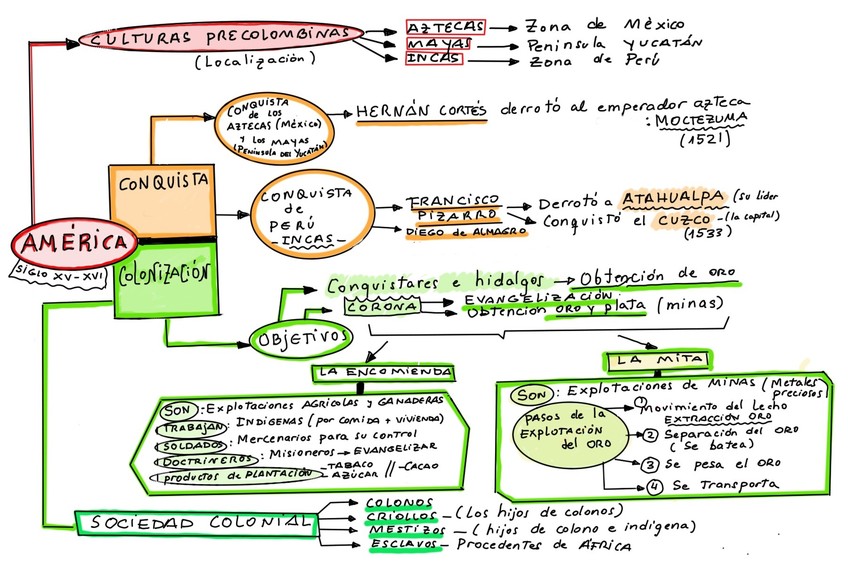 CULTURAS PRECOLOMBINAS
(Localización)
AZTECAS → Zona de Mèxico
MAYAS → Peninsula YUCATÁN
INCAS → Zona de Perú
CONQUISTA
de los
AZTECAS (México)
Y LOS MAYAS
(PENÍNSULA DEL YUCATÁN)
HERNÁN CORTÉS derrotó al emperador azteca
: MOCTEZUMA
(1521)
CONQUISTA
CONQUISTA
de
PERÚ
-INCAS-
FRANCISCO
PIZARRO
DIEGO de ALMAGRO
Derrotó a ATAHUALPA (su lider
Conquistó el CUZCO - (la capital)
(1533)
AMÉRICA
SIGLO XV-XVI
COLONIZACIÓN
OBJETIVOS
Conquistares e hidalgos → Obtención de oro
CORONA
EVANGELIZACIÓN
Obtención oro y plata (minas)
LA ENCOMIENDA
SON: Explotaciones AGRÍCOLAS y GANADERAS
TRABAJAN: INDÍGENAS (por comida + vivienda)
SOLDADOS: Mercenarios para su control
DOCTRINEROS: Misioneros → EVANGELIZAR
productos de PLANTACIÓN -TABACO // -CACAO
-AZÚCAR
LA MITA
SON: Explotaciones de MINAS (Metales
preciosos)
PASOS de la
EXPLOTACIÓN
del ORO
① Movimiento del Lecho
EXTRACCIÓN ORO
② Separación del ORO
(Se batea)
③ Se pesa el ORO
④ Se Transporta
SOCIEDAD COLONIAL
COLONOS
CRIOLLOS - (Los hijos de colonos)
MESTIZOS - (hijos de colono e indígena)
ESCLAVOS - Procedentes de ÁFRICA